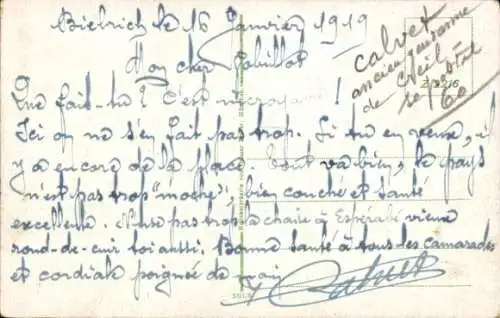 Biebrich le 16 Janvier 1919
Mon cher
Que fait-tu ? C'est incroyable !
Ici on ne s'en fait pas trop. Si tu en veux, il
y a encore de la place. Tout va bien, le pays
n'est pas trop "moche", bien couché et santé
excellente. N'use pas trop ta chaise à vieux
rond-de-cuir toi aussi. Bonne santé à tous les camarades
et cordiale poignée de main
Calvet
Calvet
ancien gendarme
de Creil
60